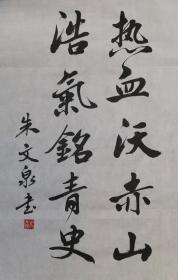 热血沃赤山
浩氣銘青史
朱文泉书